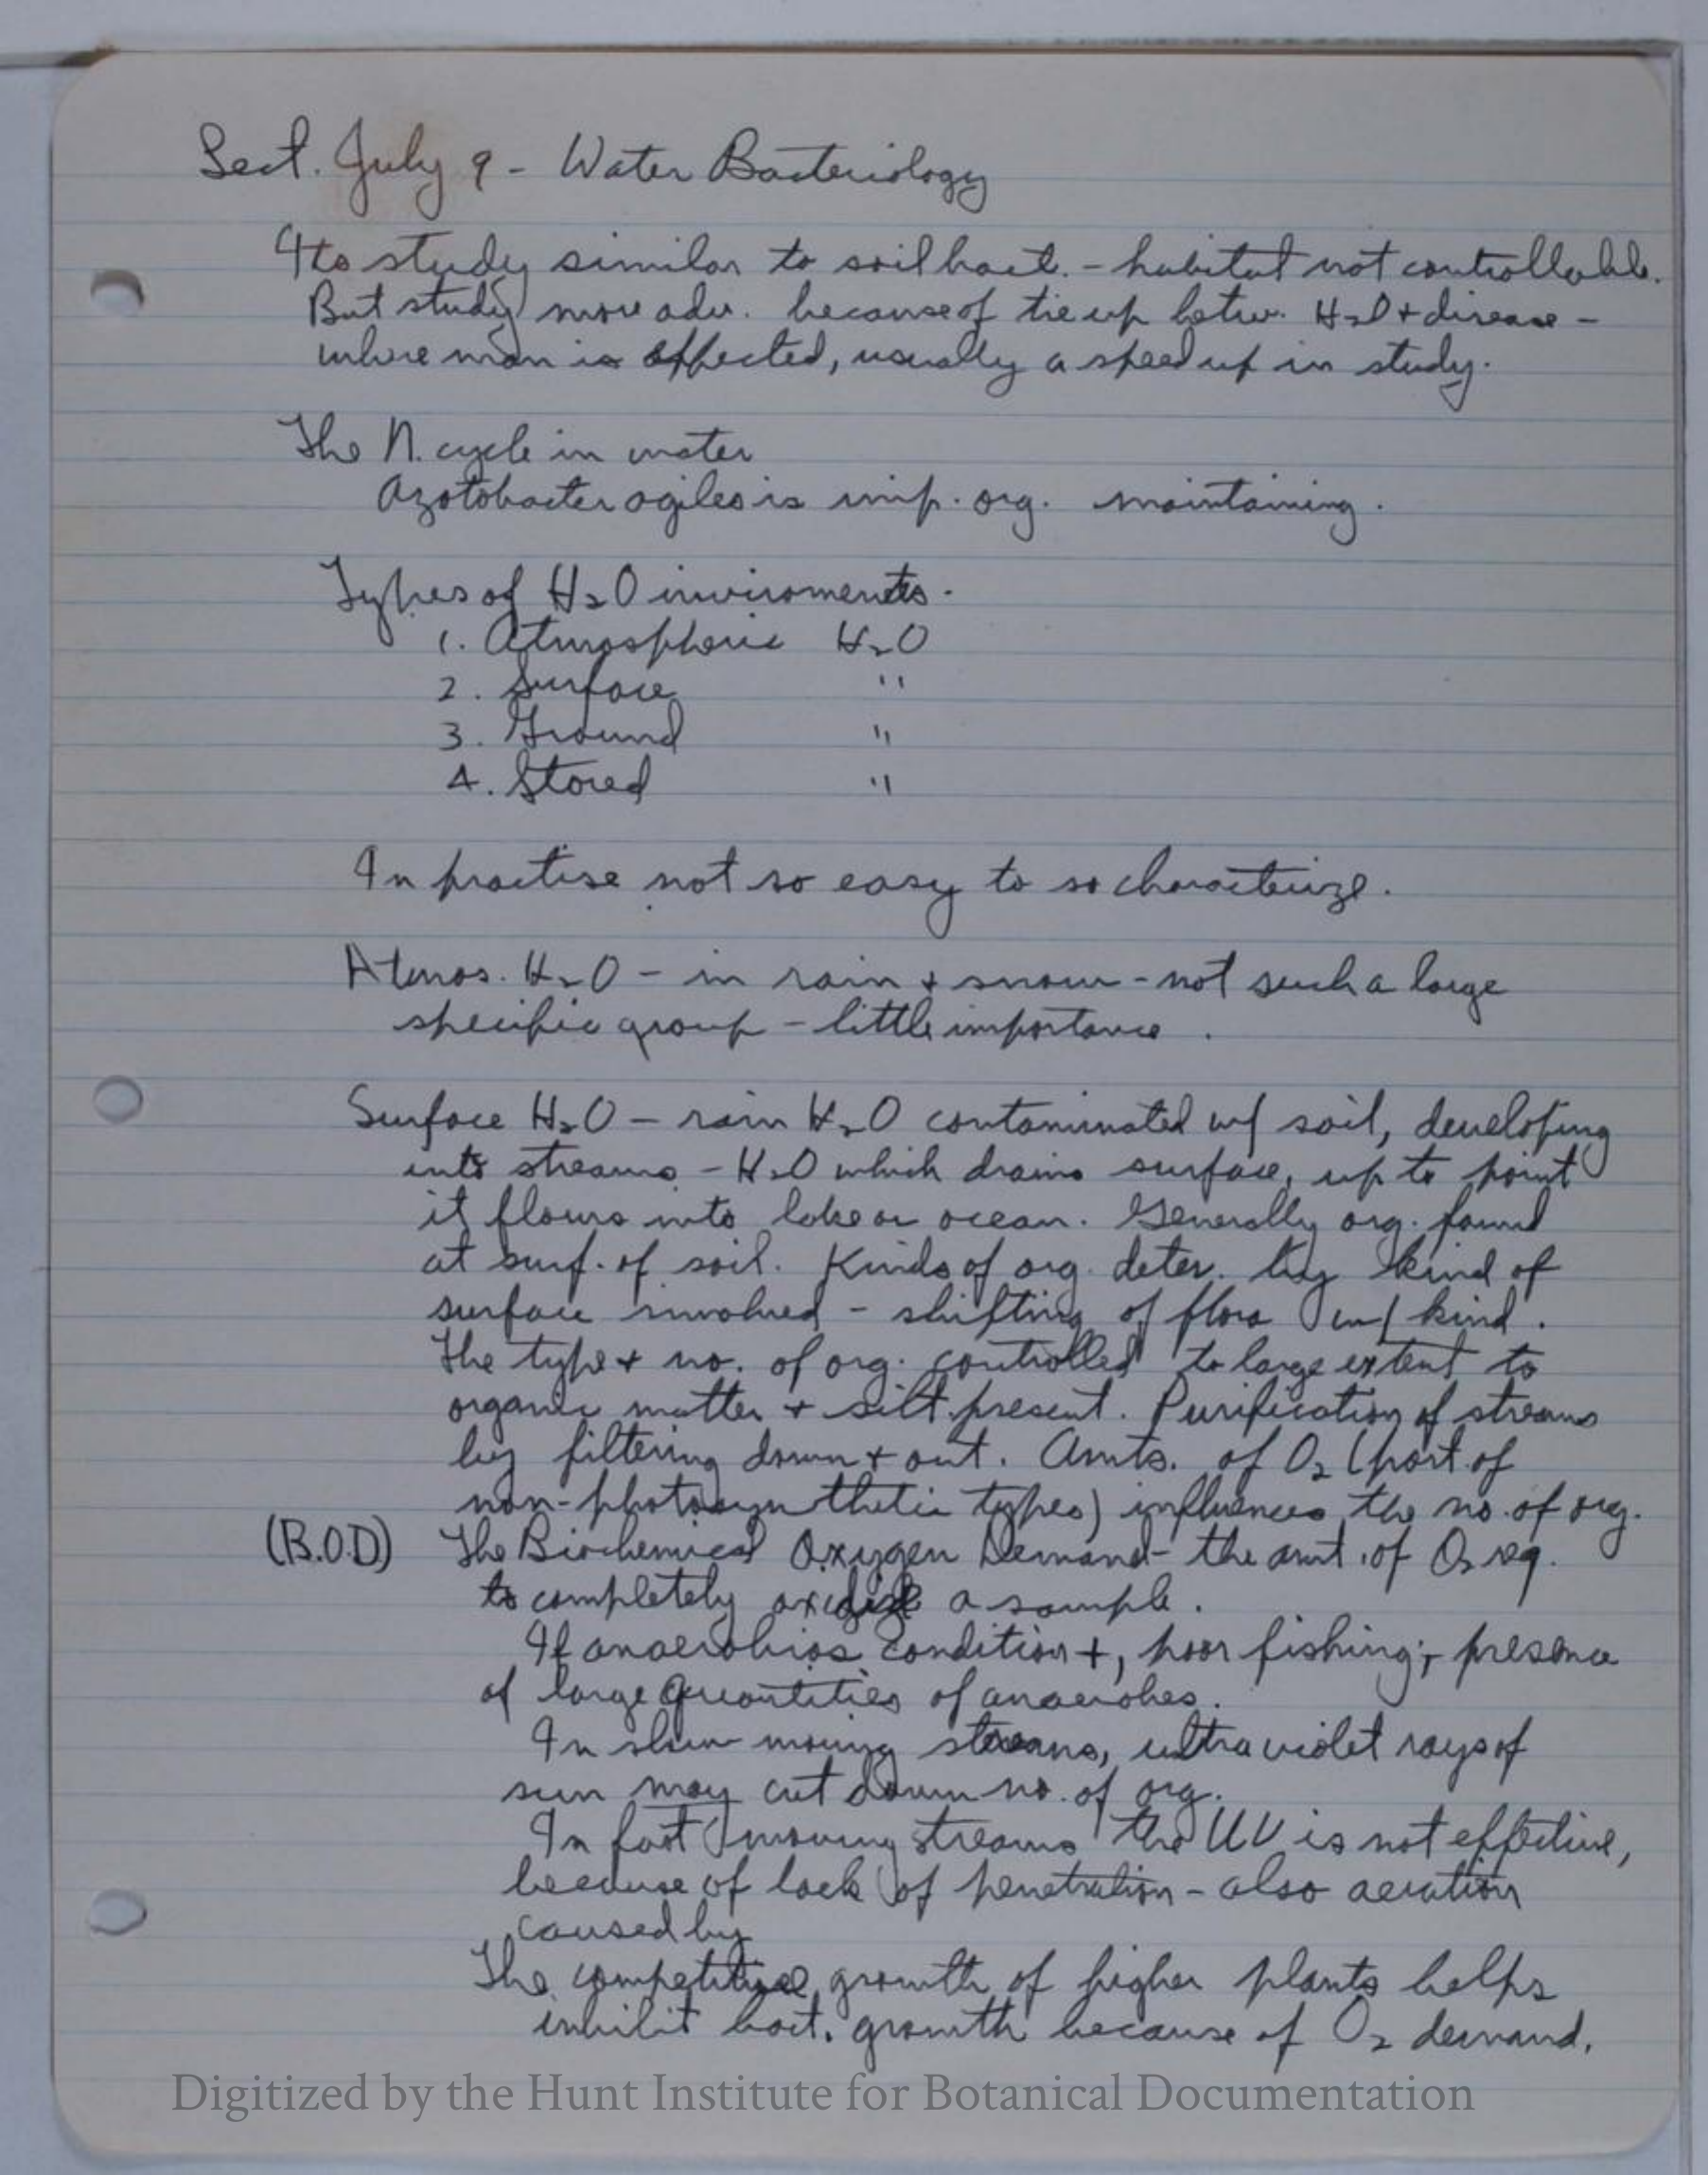 Lect. July 9 - Water Bacteriology
Its study similar to soil bact. - habitat not controllable.
But study more adv. because of tie up betw. H2O + disease -
where man is affected, usually a speed up in study.
The N. cycle in water
Azotobacter agiles is imp. org. maintaining.
Types of H2O inviroments.
1. Atmospheric H2O
2. Surface "
3. Ground "
4. Stored "
In practise not so easy to so characterize.
Atmos. H2O - in rain & snow - not such a large
specific group - little importance.
Surface H2O - rain H2O contaminated w/ soil, developing
into streams - H2O which drains surface, up to point
it flows into lake or ocean. Generally org. found
at surf. of soil. Kinds of org. deter. by kind of
surface involved - shifting of flora w/ kind.
The type & no. of org. controlled to large extent to
organic matter + silt present. Purification of streams
by filtering down + out. Amts. of O2 (part of
non-photosynthetic types) influences the no. of org.
(B.O.D) The Biochemical Oxygen Demand - the amt. of O2 req.
to completely oxidize a sample.
If anaerobios condition +, poor fishing; + presence
of large quantities of anaerobes.
In slow moving streams, ultra violet rays of
sun may cut down no. of org.
In fast moving streams the UV is not effective,
because of lack of penetration - also aeration
caused by
The competitive growth of higher plants helps
inhibit bact. growth because of O2 demand.
Digitized by the Hunt Institute for Botanical Documentation